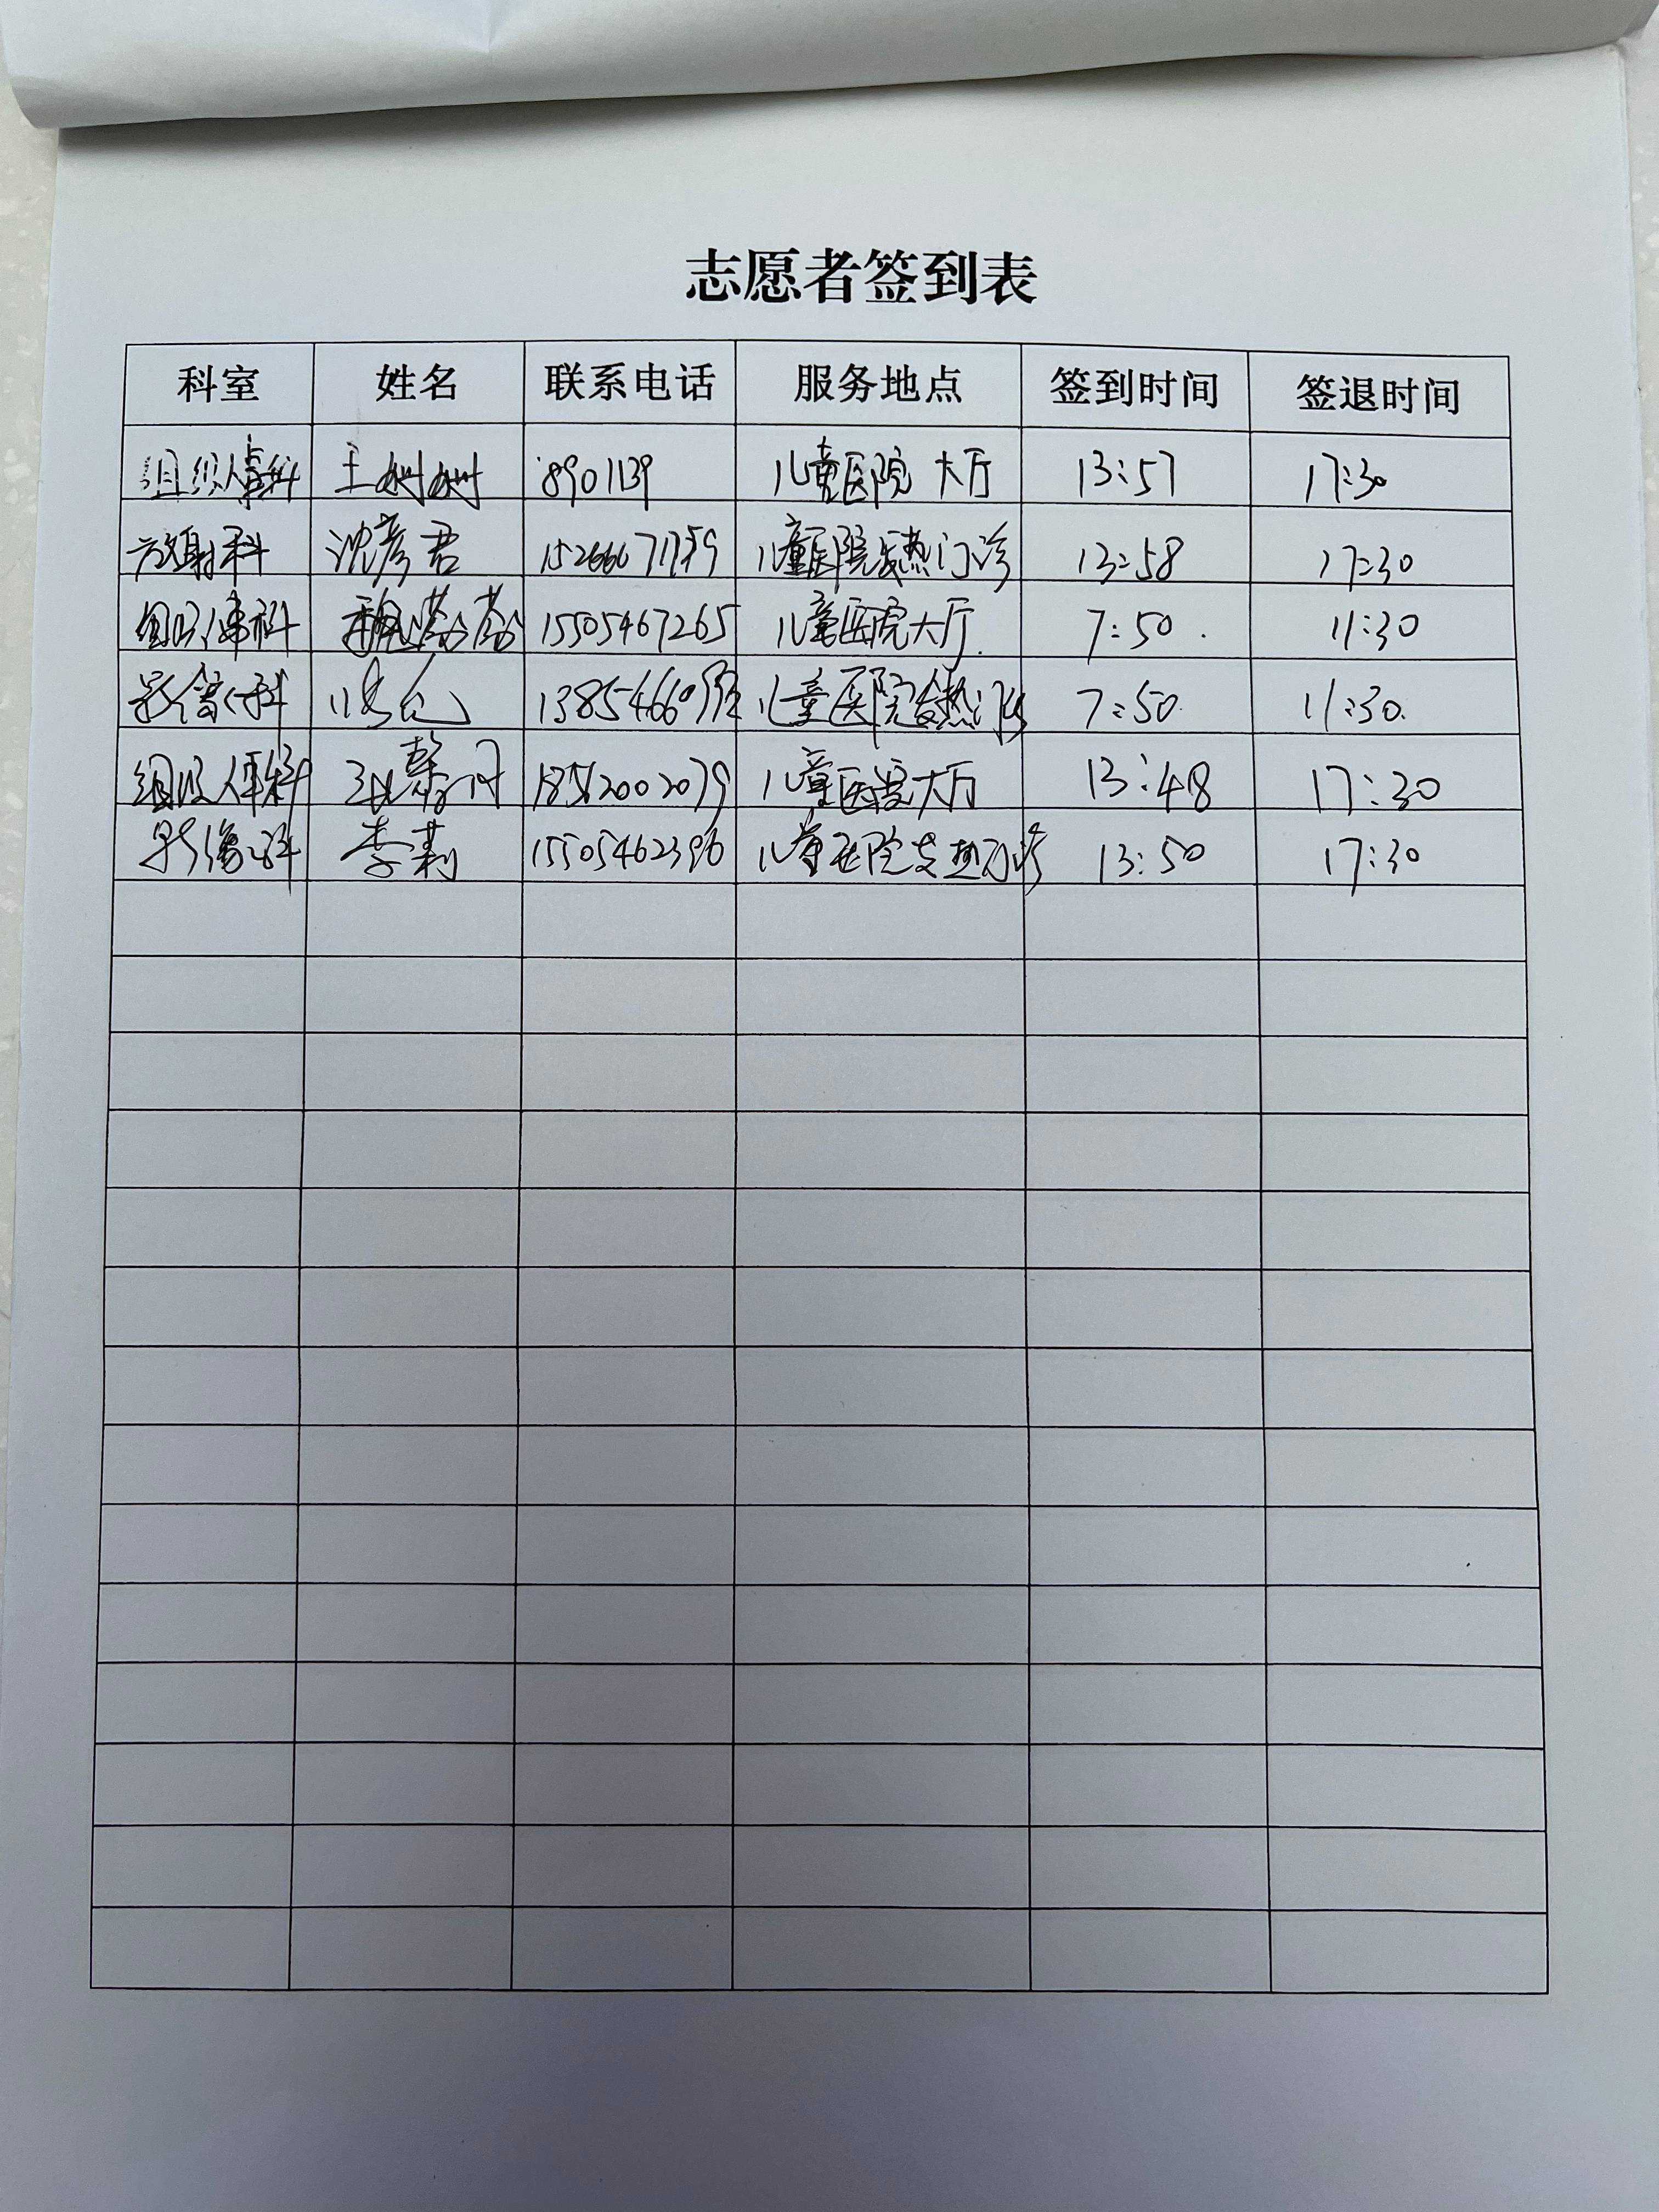 志愿者签到表
科室 姓名 联系电话 服务地点 签到时间 签退时间
组织人事科 王树树 8901139 儿童医院 大厅 13:57 17:30
放射科 沈彦君 儿童医院发热门诊 13:58 17:30
组织人事科 魏 15505467265 儿童医院大厅 7:50 11:30
影像科 儿童医院发热门诊 7:50 11:30
组织人事科 18562002079 儿童医院大厅 13:48 17:30
影像科 李莉 15505462396 儿童医院发热门诊 13:50 17:30